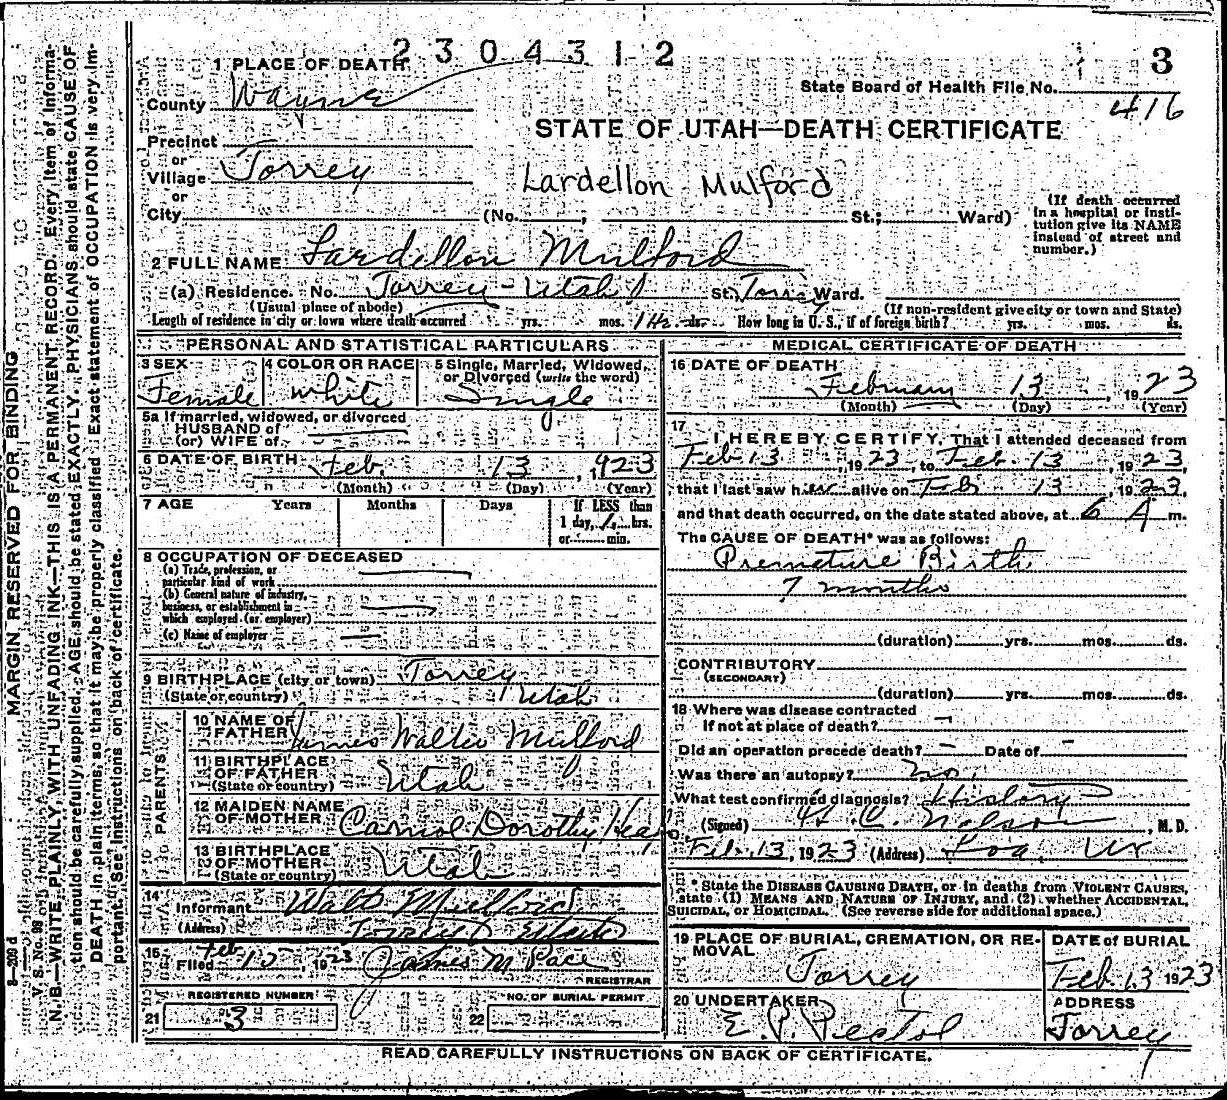 2304312
3
1 PLACE OF DEATH
State Board of Health File No.
416
County Wayne
STATE OF UTAH—DEATH CERTIFICATE
Precinct
or
Village Torrey
Lardellon Mulford
or
City (No. ; St.; Ward)
(If death occurred in a hospital or institution give its NAME instead of street and number.)
2 FULL NAME Lardellon Mulford
(a) Residence. No. Torrey - Utah St. Torrey Ward.
(Usual place of abode) (If non-resident give city or town and State)
Length of residence in city or town where death occurred yrs. mos. 1 Hr. ds. How long in U. S., if of foreign birth? yrs. mos. ds.
PERSONAL AND STATISTICAL PARTICULARS
3 SEX 4 COLOR OR RACE 5 Single, Married, Widowed, or Divorced (write the word)
Female white Single
5a If married, widowed, or divorced
HUSBAND of
(or) WIFE of
6 DATE OF BIRTH Feb. 13, 1923
(Month) (Day) (Year)
7 AGE Years Months Days If LESS than
1 day, 1 hrs.
or min.
8 OCCUPATION OF DECEASED
(a) Trade, profession, or
particular kind of work
(b) General nature of industry,
business, or establishment in
which employed (or employer)
(c) Name of employer
9 BIRTHPLACE (city or town) Torrey
(State or country) Utah
PARENTS
10 NAME OF FATHER James Walter Mulford
11 BIRTHPLACE OF FATHER
(State or country) Utah
12 MAIDEN NAME OF MOTHER Carriol Dorothy
13 BIRTHPLACE OF MOTHER
(State or country) Utah
14
Informant Walt Mulford
(Address) Torrey
15
Filed Feb 15, 1923 James M Pace
REGISTRAR
REGISTERED NUMBER NO. OF BURIAL PERMIT
21 3 22
MEDICAL CERTIFICATE OF DEATH
16 DATE OF DEATH
February 13, 1923
(Month) (Day) (Year)
17
I HEREBY CERTIFY, That I attended deceased from
Feb 13, 1923, to Feb. 13, 1923,
that I last saw her alive on Feb 13, 1923,
and that death occurred, on the date stated above, at 6 A m.
The CAUSE OF DEATH* was as follows:
Premature Birth
7 months
(duration) yrs. mos. ds.
CONTRIBUTORY
(SECONDARY)
(duration) yrs. mos. ds.
18 Where was disease contracted
if not at place of death?
Did an operation precede death? — Date of —
Was there an autopsy? no.
What test confirmed diagnosis? History
(Signed) H. C. Nelson, M. D.
Feb. 13, 1923 (Address) Loa, Ut
* State the DISEASE CAUSING DEATH, or in deaths from VIOLENT CAUSES, state (1) MEANS AND NATURE OF INJURY, and (2) whether ACCIDENTAL, SUICIDAL, or HOMICIDAL. (See reverse side for additional space.)
19 PLACE OF BURIAL, CREMATION, OR REMOVAL DATE of BURIAL
Torrey Feb. 13 1923
20 UNDERTAKER ADDRESS
E. P. Pectol Torrey
READ CAREFULLY INSTRUCTIONS ON BACK OF CERTIFICATE.
MARGIN RESERVED FOR BINDING
V. S. No. 98
N. B.—WRITE PLAINLY, WITH UNFADING INK—THIS IS A PERMANENT RECORD. Every item of information should be carefully supplied. AGE should be stated EXACTLY. PHYSICIANS should state CAUSE OF DEATH in plain terms, so that it may be properly classified. Exact statement of OCCUPATION is very important. See instructions on back of certificate.